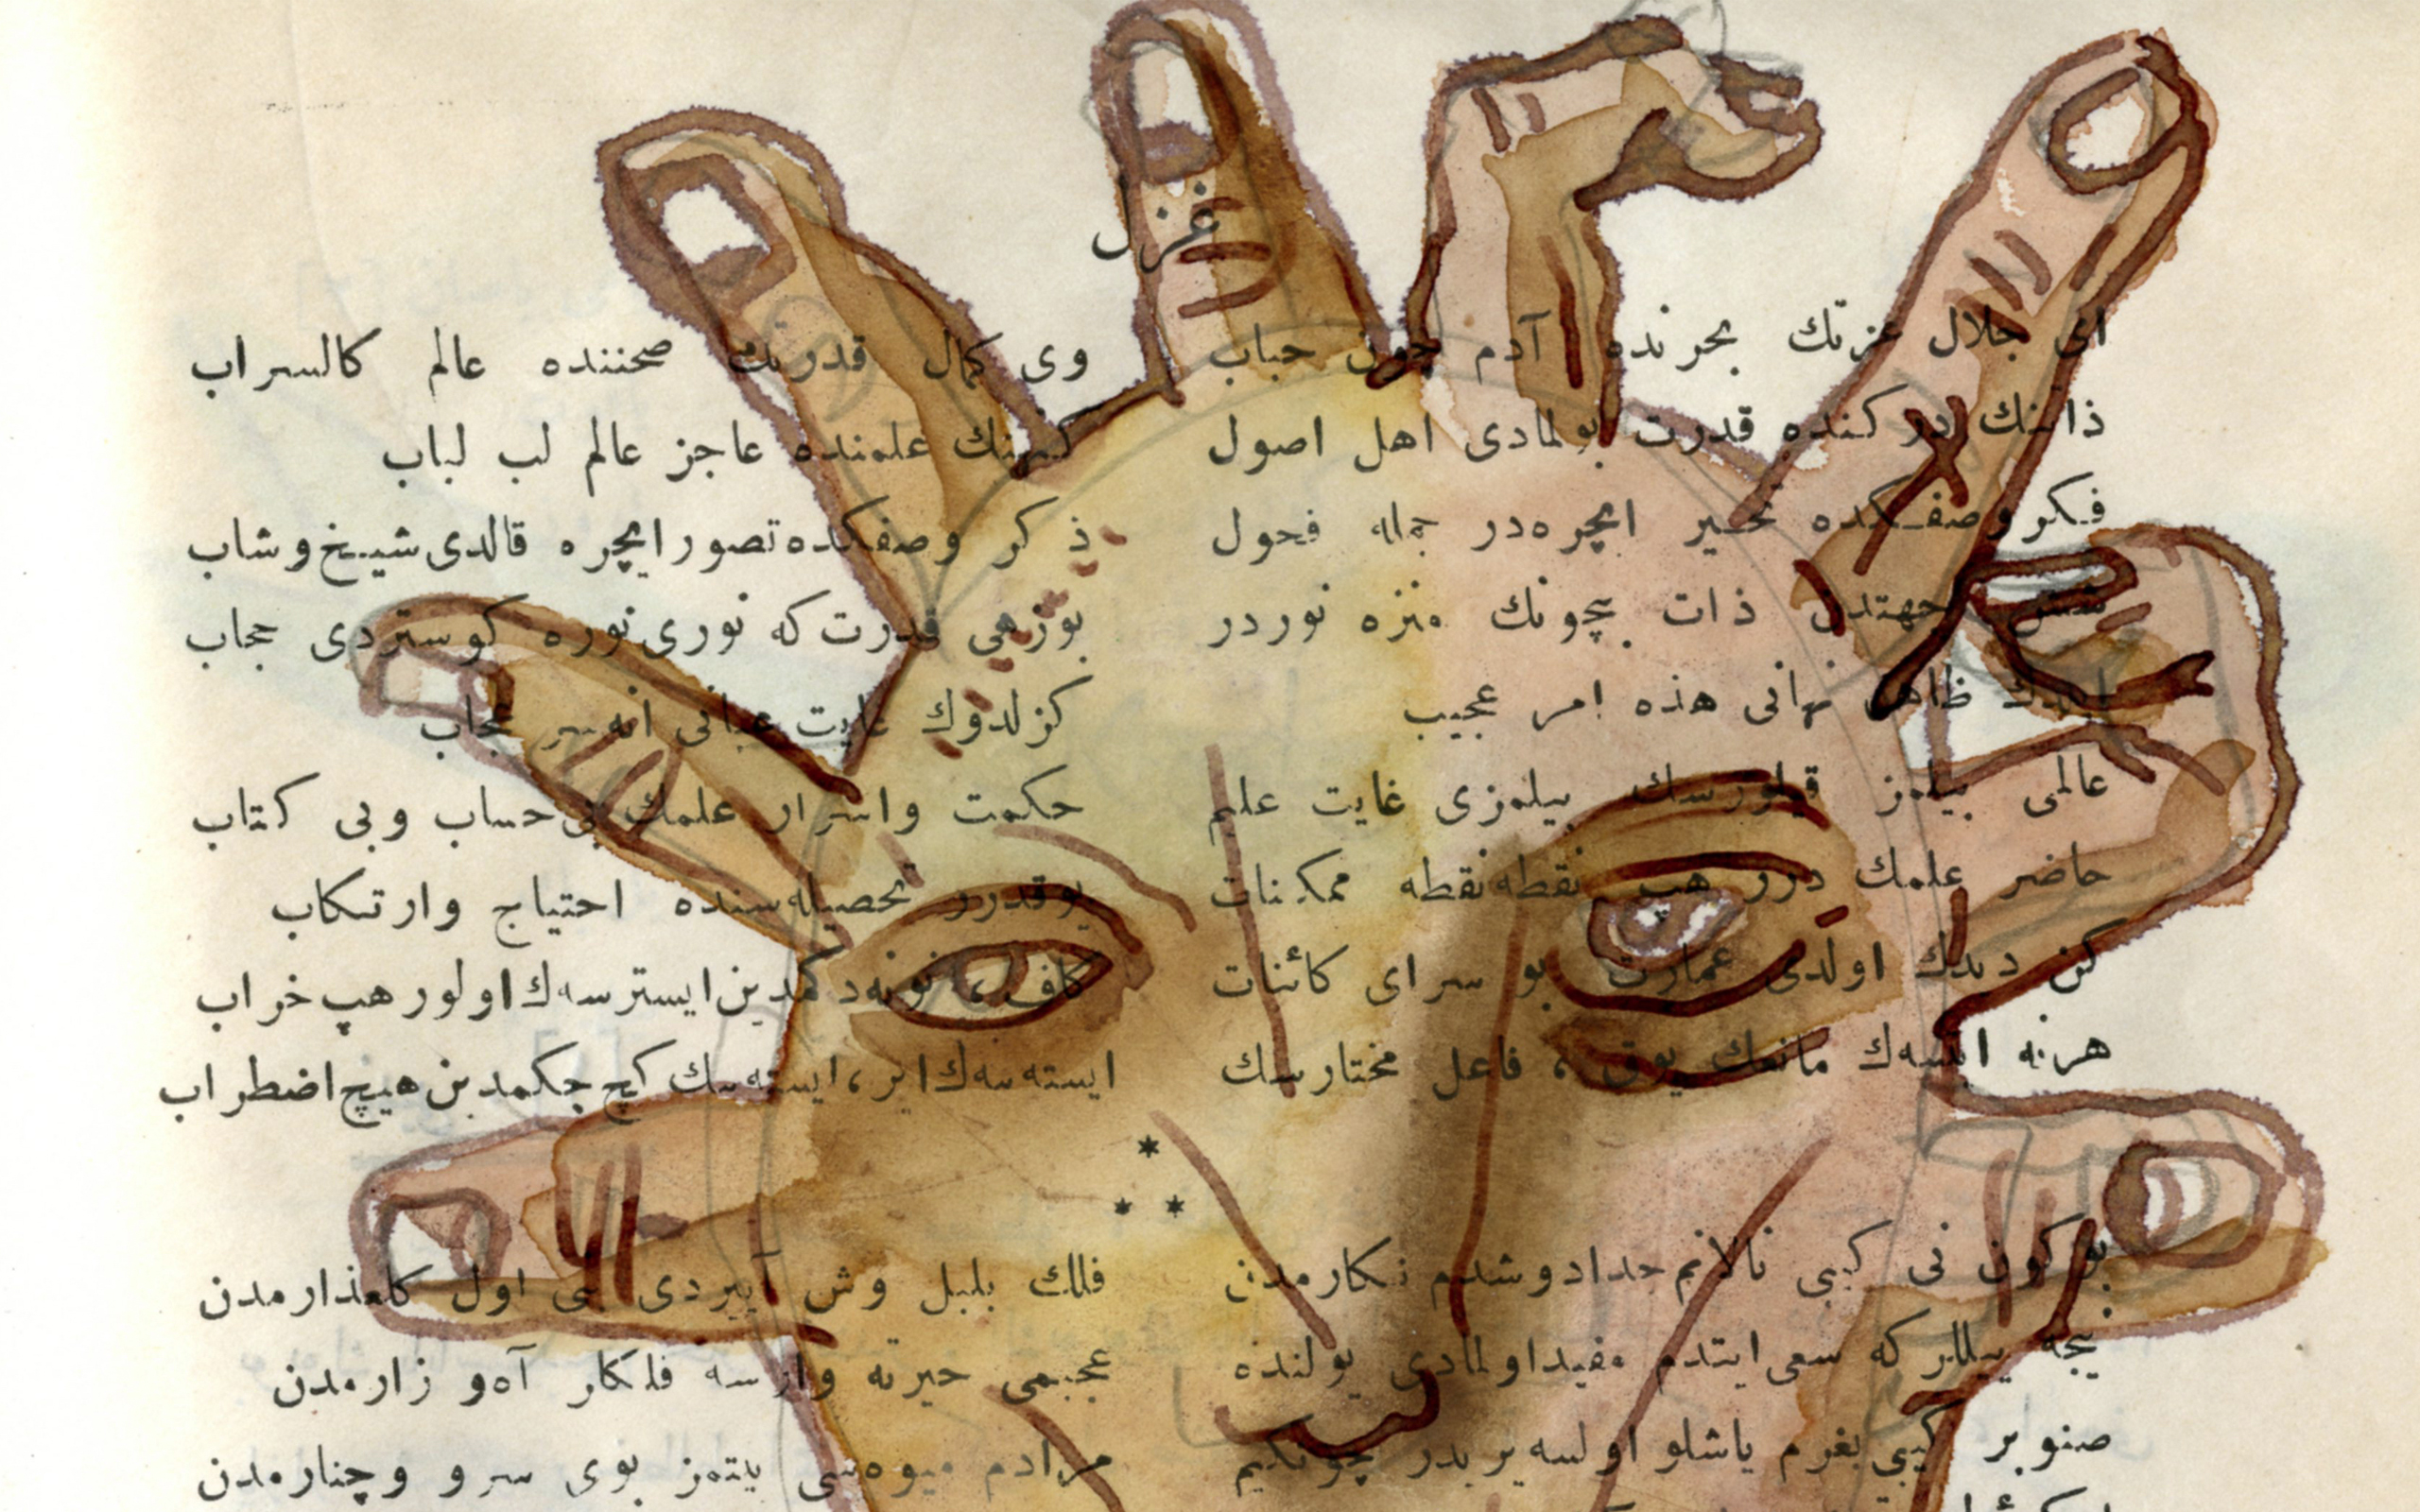 غزل
ای جلال عزتك بحرنده آدم چون حباب وی كمال قدرتك صحننده عالم كالسراب
ذاتنك در كنده قدرت بولمادی اهل اصول كنهنك علمنده عاجز عالم لب لباب
فكر وصفكده تحير ایچره‌در جمله فحول ذكر وصفكده تصور ایچره قالدی شیخ و شاب
شش جهتدن ذات بیچونك منزه نوردر بوزهی قدرت كه نوری نوره كوستردی حجاب
ایدك ظاهر نهانی هذه امر عجیب كزلدوك غایت عیانی انه سر عجاب
عالمی بیلمز قیلورسك بیلمزی غایت علیم حكمت واسرار علمك بی حساب وبی كتاب
حاضر علمك درر هپ نقطه نقطه ممكنات یوقدرر تحصیله‌سنده احتیاج وارتكاب
كن دیدك اولدی عمارت بو سرای كائنات كاف، نونه دكمدین ایسترسه‌ك اولور هپ خراب
هرنه ایتسه‌ك مانعك یوق، فاعل مختارسك ایسته‌سه‌ك ایر، ایسته‌سك كیچ جكمدین هیچ اضطراب
* * *
بو كون نی كیبی نالانم جدا دوشدم نكارمدن فلك بلبل وش آییردی بنی اول كلعذارمدن
نیجه ییللر كه سعی ایتدم مفید اولمادی یولنده عجبمی حیرته وارسه فلكلر آه و زارمدن
صنوبر كیبی بغرم یاشلو اولسه یریدر چونكیم مرادم میوه‌سی یتمز بوی سرو و چنارمدن